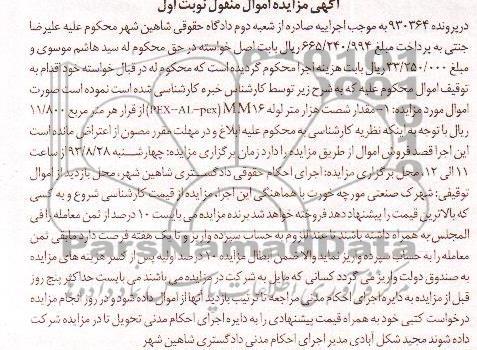 آگهی مزایده اموال منقول نوبت اول
درپرونده ۹۳۰۳۶۴ به موجب اجراییه صادره از شعبه دوم دادگاه حقوقی شاهین شهر محکوم علیه علیرضا
جنتی به پرداخت مبلغ ۶۶۵/۲۴۰/۹۹۴ ریال بابت اصل خواسته در حق محکوم له سید هاشم موسوی و
مبلغ ۳۳/۲۵۰/۰۰۰ ریال بابت هزینه اجرا محکوم گردیده است که محکوم له در قبال خواسته خود اقدام به
توقیف اموال محکوم علیه که به شرح زیر توسط کارشناس خبره کارشناسی شده است نموده است صورت
اموال مورد مزایده: ۱- مقدار شصت هزار متر لوله MM۱۶ (PEX-AL-pex) از قرار هر متر مربع ۱۱/۸۰۰
ریال با توجه به اینکه نظریه کارشناسی به محکوم علیه ابلاغ و در مهلت مقرر مصون از اعتراض مانده است
این اجرا قصد فروش اموال از طریق مزایده را دارد زمان برگزاری مزایده: چهارشنبه ۹۳/۸/۲۸ از ساعت
۱۱ الی ۱۲، محل برگزاری مزایده: اجرای احکام حقوقی دادگستری شاهین شهر، محل بازدید از اموال
توقیفی: شهرک صنعتی مورچه خورت با هماهنگی این اجرا، مزایده از قیمت کارشناسی شروع و به کسی
که بالاترین قیمت را پیشنهاد دهد فروخته خواهد شد برنده مزایده می بایست ۱۰ درصد از ثمن معامله را فی
المجلس به همراه داشته باشند تا عندالزوم به حساب سپرده واریز و تا یک هفته فرصت دارد مابقی ثمن
معامله را به حساب سپرده واریز نماید والا ضمن ابطال مزایده ۱۰ درصد اولیه پس از کسر هزینه های مزایده
به صندوق دولت واریز می گردد کسانی که مایل به شرکت در مزایده می باشند می بایست حداکثر پنج روز
قبل از مزایده به دایره اجرای احکام مدنی مراجعه تا ترتیب بازدید آنها از اموال داده شود و در روز انجام مزایده
درخواست کتبی خود به همراه قیمت پیشنهادی را به دایره اجرای احکام مدنی تحویل تا در مزایده شرکت
داده شوند مجید شکل آبادی مدیر اجرای احکام مدنی دادگستری شاهین شهر
ParsNamadData